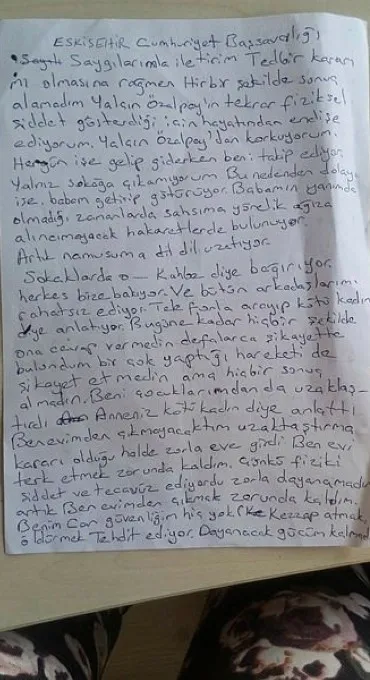 ESKİSEHİR Cumhuriyet Başsavcılığı
Saygılarımla iletirim Tedbir kararı
mı olmasına rağmen Hirbir şekilde sonuç
alamadım Yalçın Özalpay'ın tekrar fiziksel
şiddet gösterdiği için hayatından endişe
ediyorum. Yalçın Özalpay'dan korkuyorum.
Hergün işe gelip giderken beni takip ediyor.
Yalnız sokağa çıkamıyorum Bu nedenden dolayı
işe babam getirip götürüyor. Babamın yanımda
olmadığı zamanlarda şahsıma yönelik ağıza
alıncımayacak hakaretlerde bulunuyor.
Artık namusuma dil dil uzatıyor.
Sokaklarda o — Kahbe diye bağırıyor.
herkes bize bakıyor. Ve bütün arkadaşlarımı
rahatsız ediyor. Tek fonla arayıp kötü kadın
diye anlatıyor. Bugüne kadar hiçbir şekilde
ona cevap vermedin defalarca şikayette
bulundum bir çok yaptığı hareketi de
şikayet etmedin ama hiçbir sonuç
almadın. Beni çocuklarımdan da uzaklaş-
tırdı Anneniz kötü kadın diye anlattı
Ben evimden çıkmayacaktım uzaktaştırma
kararı olduğu halde zorla eve girdi Ben evi
terk etmek zorunda kaldım. çünkü fiziki
şiddet ve tecavüz ediyordu zorla dayanamadım
artık Ben evimden çıkmak zorunda kaldım.
Benim Can güvenliğim hiç yok. Kezzap atmak,
öldürmek Tehdit ediyor. Dayanacak gücüm kalmadı